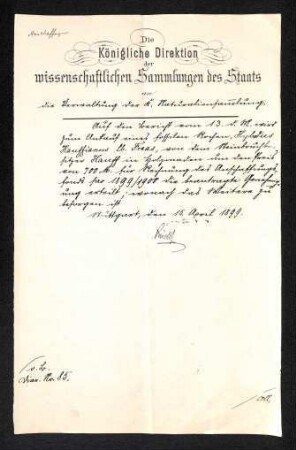 Die
Königliche Direktion
der
wissenschaftlichen Sammlungen des Staats
an
die Verwaltung des K. Naturalienkabinetts.
Auf den Bericht vom 13. d. M. wird
zum Ankauf eines fossilen Rochen, Hybodus
Hauffianus E. Fraas, von dem Steinbruchbe-
sitzer Hauff in Holzmaden um den Preis
von 700 M. für Rechnung des Anschaffungs-
fonds pro 1899/1900 die beantragte Genehmi-
gung erteilt, wonach das Weitere zu
besorgen ist.
Stuttgart, den 15. April 1899.
Diar. Nr. 85.